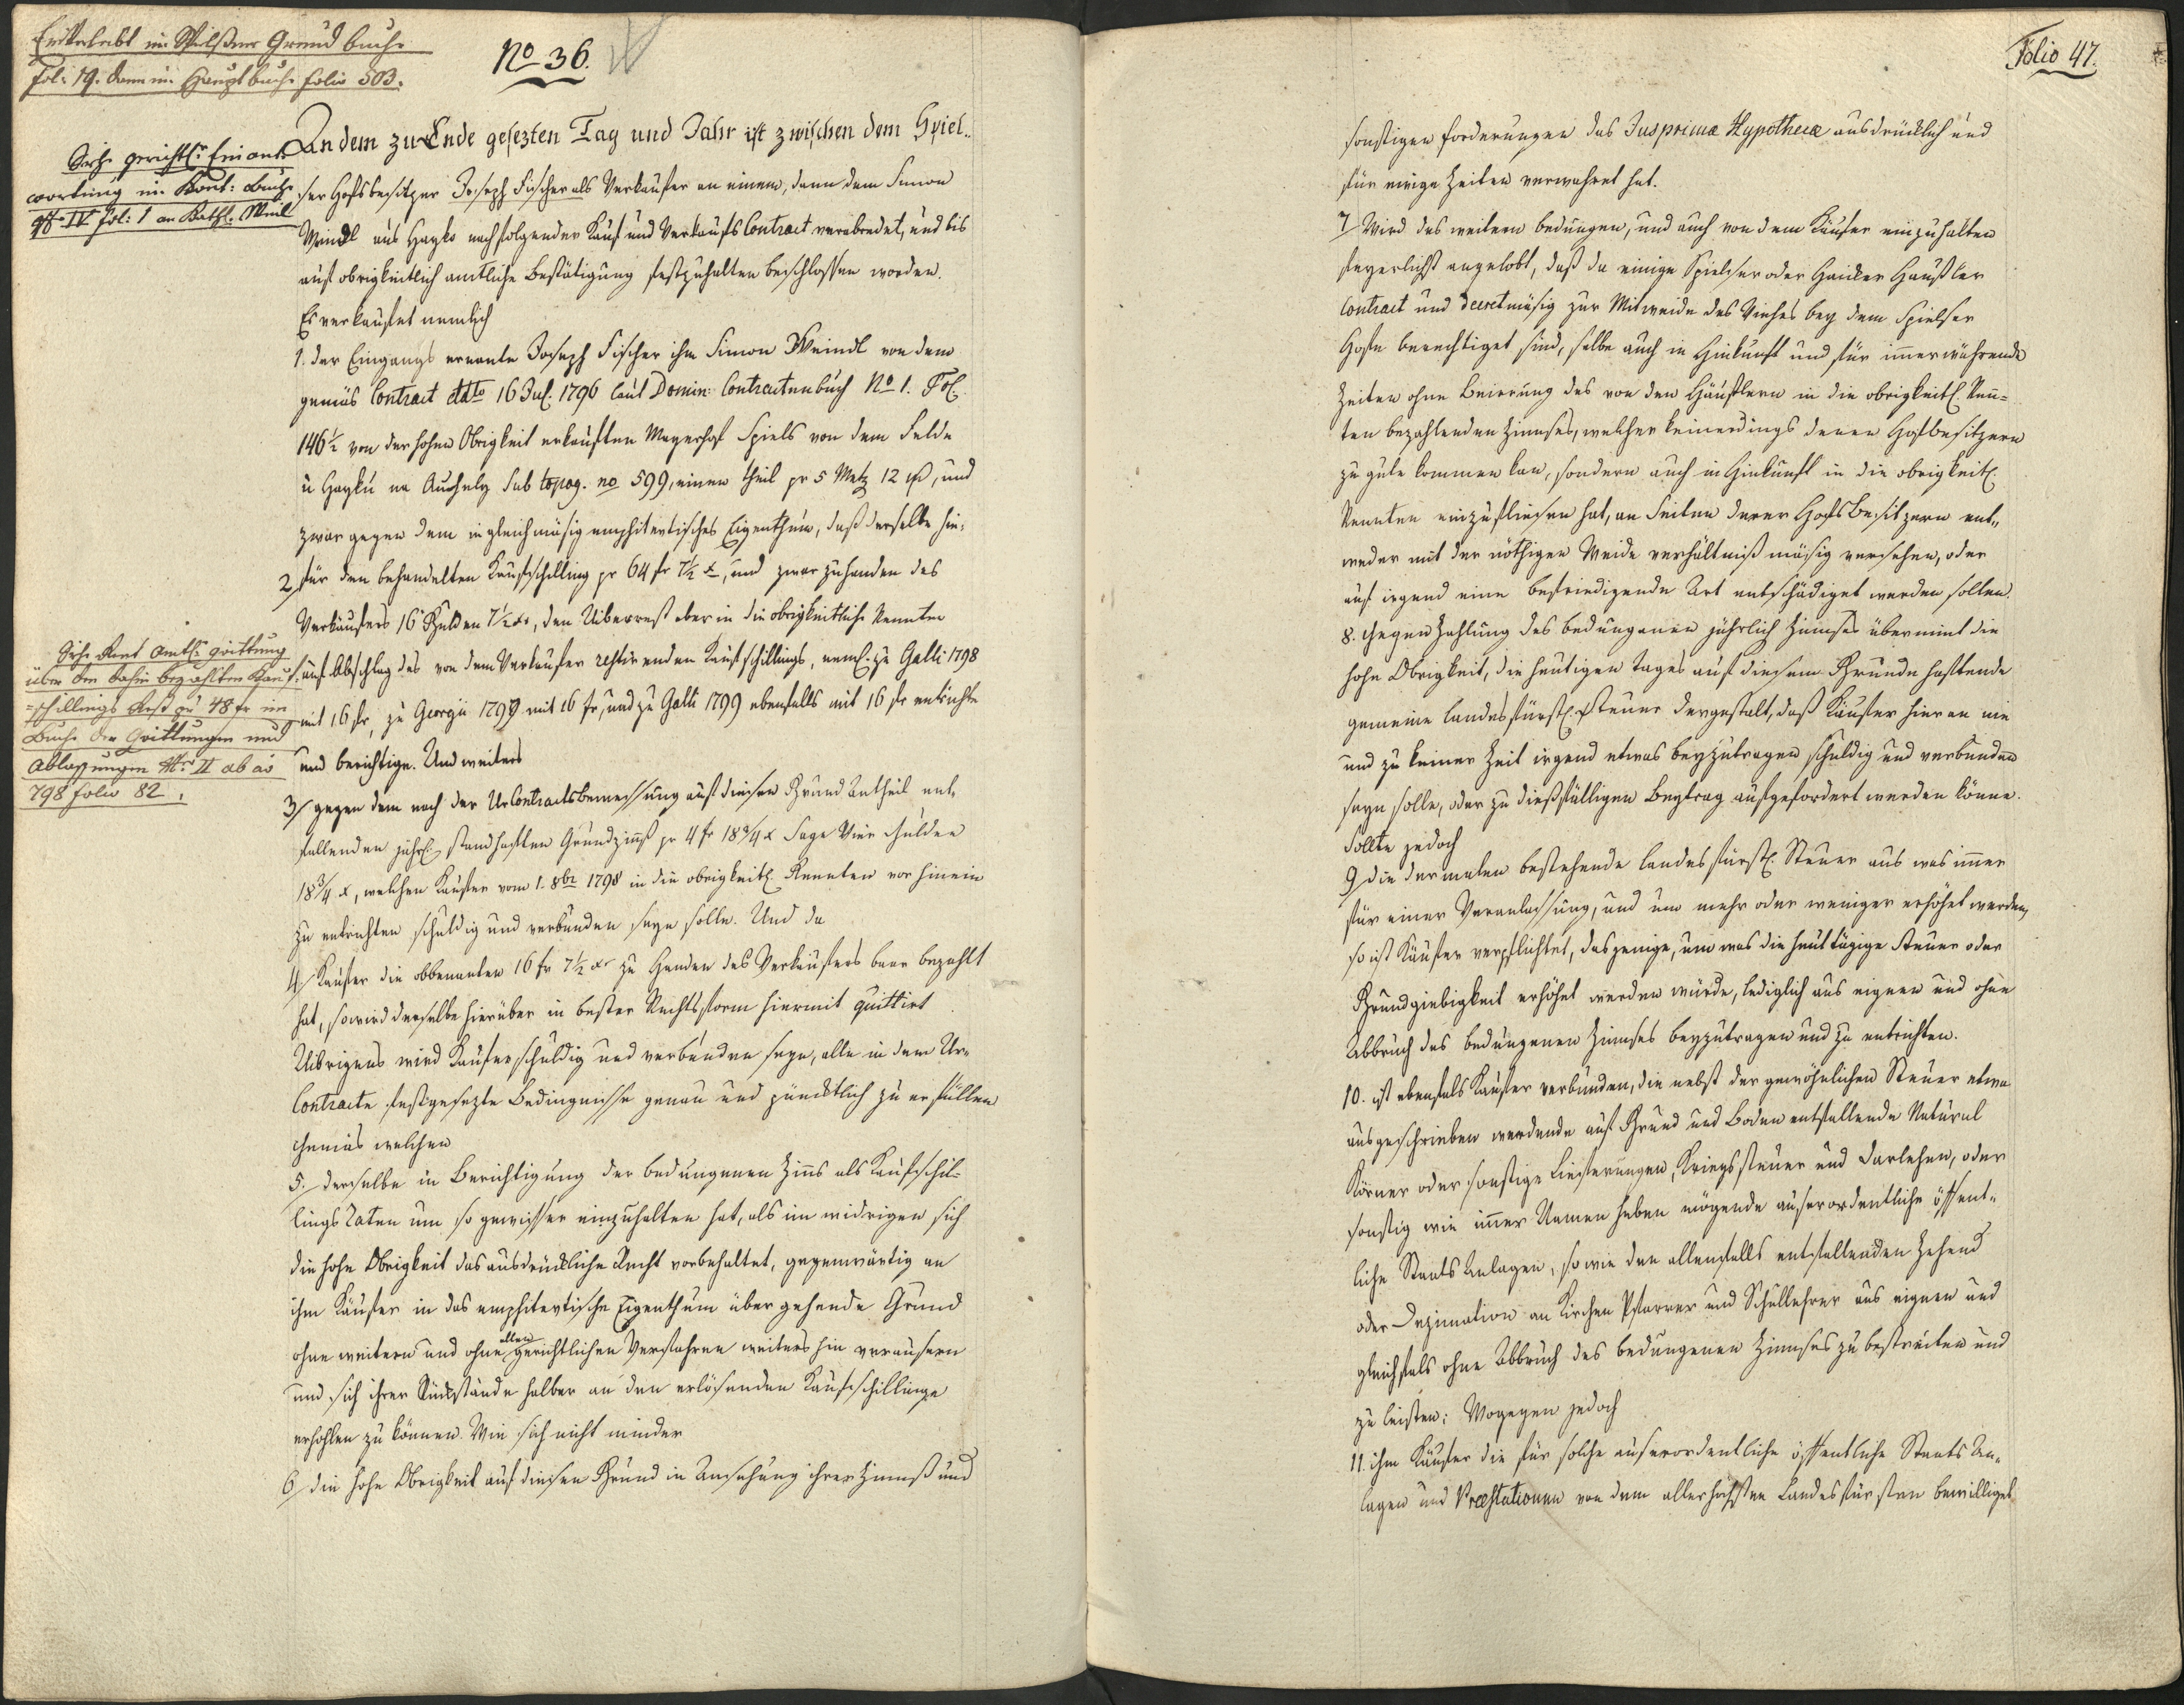 Einverleibt im Spielsner Grund buche
Fol: 19. dann im Hauptbuche folio 503.
No 36.
Siehe gerichtl: Einant-
wortung im Kont: Buche
No IV fol: 1 an Kathl. Meindl
An dem zu Ende gesezten Tag und Jahr ist zwischen dem Spiel-
ser Hofsbesitzer Joseph Fischer als Verkäufer an einem, dann dem Simon
Meindl aus Hayko nachfolgender Kauf und Verkaufs Contract verabredet, und bis
auf obrigkeitlich amtliche Bestätigung festzuhalten beschlossen worden.
Es verkaufet nemlich
1. Der Eingangs ernante Joseph Fischer ihm Simon Meindl von dem
gemäs Contract ddto 16 Jul. 1796 laut Domin: Contractenbuch No 1. Fol.
146½ von der hohen Obrigkeit erkauften Mayerhof Spiels von dem Felde
u Hayku na Sub topog. no 599, einen Theil pr 5 Metz 12 und
zwar gegen dem in gleichmäsig emphitevtisches Eigenthum, daß derselbe hie-
2 für den behandelten Kaufschilling pr 64 fr 7½ x, und zwar zuhanden des
Verkäufers 16 Gulden 7½ xr, den Uiberrest aber in die obrigkeitliche Rennten
auf Abschlag des von dem Verkäufer restirenden Kaufschillings, neml. zu Galli 1798
mit 16 fr, zu Georgii 1799 mit 16 fr, und zu Galli 1799 ebenfalls mit 16 fr entrichte
und berichtige. Und weiters
Siehe Rent Amtl: Quittung
über den dahin bezahlten Kauf-
schillings Rest pr 48 fr im
Buche der Quittungen und
Ablassungen No II ab ao
798 folio 82.
3/ gegen dem nach der UrContractsbemessung auf diesen Grund Antheil ent-
fallenden jährl. standhaften Grundzinß pr 4 fr 18¾ x Sage Vier Gulden
18¾ x, welchen Käufer vom 1. 8br 1798 in die obrigkeitl. Rennten vorhinein
zu entrichten schuldig und verbunden seyn solle. Und da
4/ Käufer die obbenanten 16 fr 7½ xr zu Handen des Verkäufers baar bezahlt
hat, so wird derselbe hierüber in bester Rechtsform hiermit quittirt
Uibrigens wird Käufer schuldig und verbunden seyn, alle in dem Ur-
Contracte festgesezte Bedingnisse genau und pünktlich zu erfüllen
Gemäs welchen
5. derselbe in Berichtigung der bedungenen Zins als Kaufschil-
lings Raten um so gewisser einzuhalten hat, als im widrigen sich
die hohe Obrigkeit das ausdrückliche Recht vorbehaltet, gegenwärtig an
ihm Käufer in das emphitevtische Eigenthum übergehende Grund
ohne weitern und ohne allen gerichtlichen Verfahren weiters hin veräusern
und sich ihrer Rückstände halber an den erlösenden Kaufschillinge
erhohlen zu können. Wie sich nicht minder
6 die hohe Obrigkeit auf diesen Grund in Ansehung ihrer Zinnß und
Folio 47.
sonstigen forderungen das Jus primæ Hypothecæ ausdrücklich und
für ewige Zeiten verwahret hat.
7 Wird des weitern bedungen, und auch von dem Käufer einzuhalten
feyerlichst angelobt, daß da einige Spielser oder Haiker Häusler
Contract und decretmäsig zur Mitweide des Viehes bey dem Spielser
Hofe berechtiget sind, selbe auch in Hinkunft und für immerwährende
Zeiten ohne Beirrung des von den Häuslern in die obrigkeitl. Renn-
ten bezahlenden Zinnses, welcher keinerdings denen Hofbesitzern
zu gute kommen kan, sondern auch in Hinkunft in die obrigkeitl.
Rennten einzufliesen hat, an Seiten derer Hofsbesitzern ent-
weder mit der nöthigen Weide verhältniß mäsig versehen, oder
auf irgend eine befriedigende Art entschädiget werden sollen.
8. Gegen Zahlung des bedungenen jährlich Zinnses übernimt die
hohe Obrigkeit, die heutigen Tages auf diesem Grunde haftende
gemeine landesfürstl. Steuer dergestalt, daß Käufer hieran nie
und zu keiner Zeit irgend etwas beyzutragen schuldig und verbunden
seyn solle, oder zu dießfälligen Beytrag aufgefordert werden könne.
Sollte jedoch
9 die dermalen bestehende landesfürstl. Steuer aus was immer
für einer Veranlassung, und um mehr oder weniger erhöhet werden,
so ist Käufer verpflichtet, dasjenige, um was die heuttägige Steuer oder
Grundgiebigkeit erhöhet werden würde, lediglich aus eignen und ohne
Abbruch des bedungenen Zinnses beyzutragen und zu entrichten.
10. ist ebenfals Käufer verbunden, die nebst der gewöhnlichen Steuer etwa
ausgeschrieben werdende auf Grund und Boden entfallende Natural
Körner oder sonstige Lieferungen, Kriegssteuer und Darlehen, oder
sonstig wie immer Namen haben mögende auserordentliche öffent-
liche Staats Anlagen, so wie den allenfalls entfallenden Zehend
oder Dezimation an Kirchen Pfarrer und Schullehrer aus eignen und
gleichfals ohne Abbruch des bedungenen Zinnses zu bestreiten und
zu leisten: Wogegen jedoch
11. ihm Käufer die für solche auserordentliche öffentliche Staats An-
lagen und Præstationen von dem allerhöchsten Landesfürsten bewilliget